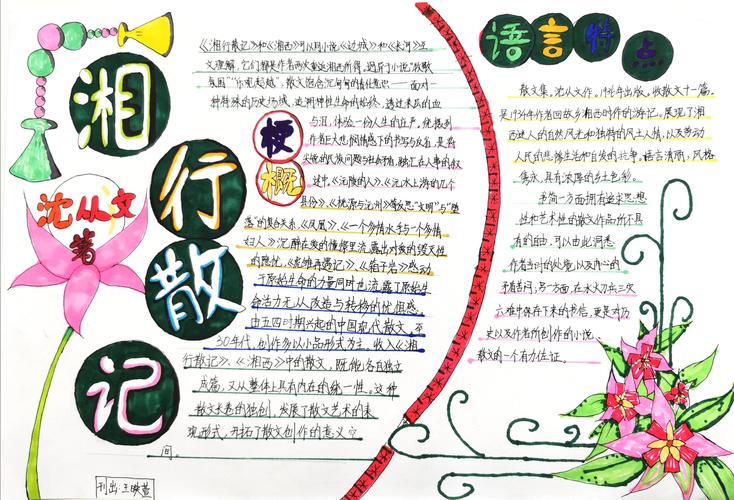 湘
行
散
记
沈从文
著
梗
概
《湘行散记》和《湘西》可以同小说《边城》和《长河》互
文理解，它们都是作者两次重返湘西所得，迥异于小说"牧歌
氛围""乐观超越"，散文饱含沉甸甸的责任意识——面对一
种特殊的历史场域，追溯种性生命的始终，透过来
与泪，体验一份人生的庄严。
作者在人世间情感下的书写与反省，是着
尖锐的民族问题与社会矛盾，融汇在人事的叙
过中。《沅陵的人》、《沅水上游的几个
县份》、《桃源与沅州》等反思"文明"与"堕
落"的复合关系，《凤凰》、《一个多情水手与一个多情
妇人》沉醉在爱的憧憬里流露出对爱的毁灭性
的隐忧，《老伴再遇记》、《箱子岩》感动
于原始生命的力量同时也流露了原始生
命活力无从改造与转移的忧惧感。
由五四时期兴起的中国现代散文，至
30年代，创作多以小品形式为主，收入《湘
行散记》、《湘西》中的散文，既能各自独立
成篇，又从整体上具有内在的统一性。这种
散文长卷的独创，发展了散文艺术的表
现形式，开拓了散文创作的意义空
间。
刊出：王映萱
语言特
点
散文集，沈从文作。1936年出版。收散文十一篇。
是1934年作者回故乡湘西时作的游记。展现了湘
西迷人的自然风光和独特的风土人情，以及劳动
人民的悲惨生活和自发的抗争。语言清丽，风格
隽永，具有浓厚的乡土色彩。
书简一方面拥有追求思想
性和艺术性的散文作品所不具
有的自由，可以由此洞悉
作者当时的处境以及内心的
矛盾苦闷；另一方面，在水火刀兵三次
大难中保存下来的书信，更是对历
史以及作者所创作的小说、
散文的一个有力佐证。